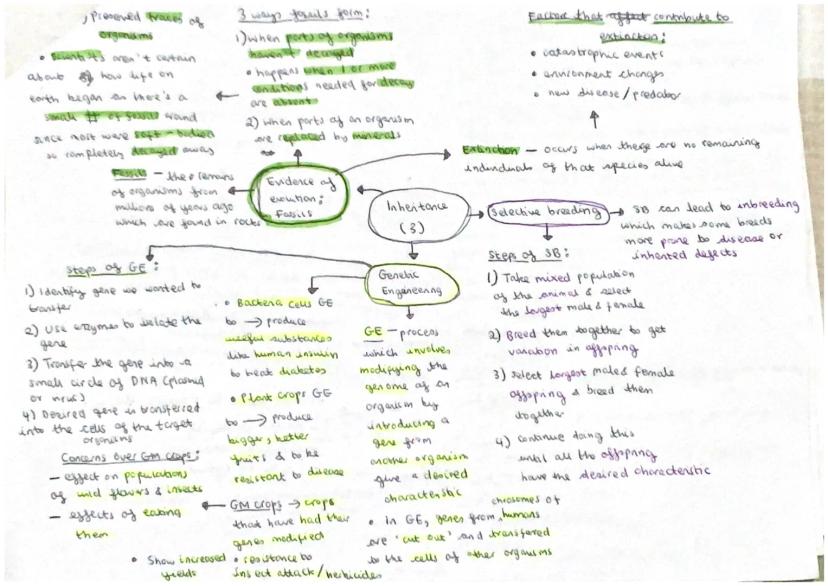 , preserved traces of
organisms
• Scientists aren't certain
about how life on
earth began as there's a
small # of fossils found
since most were soft-bodied
so completely decayed away
Fossils - the remains
of organisms from
millions of years ago
which are found in rocks
3 ways fossils form:
1) when parts of organisms
haven't decayed
• happens when 1 or more
conditions needed for decay
are absent
2) when parts of an organism
are replaced by minerals
Factors that affect contribute to
extinction:
• catastrophic events
• environment changes
• new disease/predator
Extinction - occurs when there are no remaining
individuals of that species alive
Evidence of
evolution:
Fossils
Inheritance
(3)
Selective breeding
SB can lead to inbreeding
which makes some breeds
more prone to disease or
inherited defects
Steps of SB:
1) Take mixed population
of the animal & select
the largest male & female
2) Breed them together to get
variation in offspring
3) select largest male & female
offspring & breed them
together
4) continue doing this
until all the offspring
have the desired characteristic
Genetic
Engineering
Steps of GE:
1) Identify gene we wanted to
transfer
2) Use enzymes to isolate the
gene
3) Transfer the gene into a
small circle of DNA (plasmid
or virus)
4) Desired gene is transferred
into the cells of the target
organisms
Concerns over GM crops:
- effect on populations
of wild flowers & insects
- effects of eating
them
• Bacteria cells GE
to → produce
useful substances
like human insulin
to treat diabetes
• Plant crops GE
to → produce
bigger, better
fruits & to be
resistant to disease
GM crops → crops
that have had their
genes modified
• Show increased
yields
• resistance to
insect attack/herbicides
GE - process
which involves
modifying the
genome of an
organism by
introducing a
gene from
another organism
give a desired
characteristic
• In GE, genes from chromosomes of humans
are 'cut out' and transferred
to the cells of other organisms